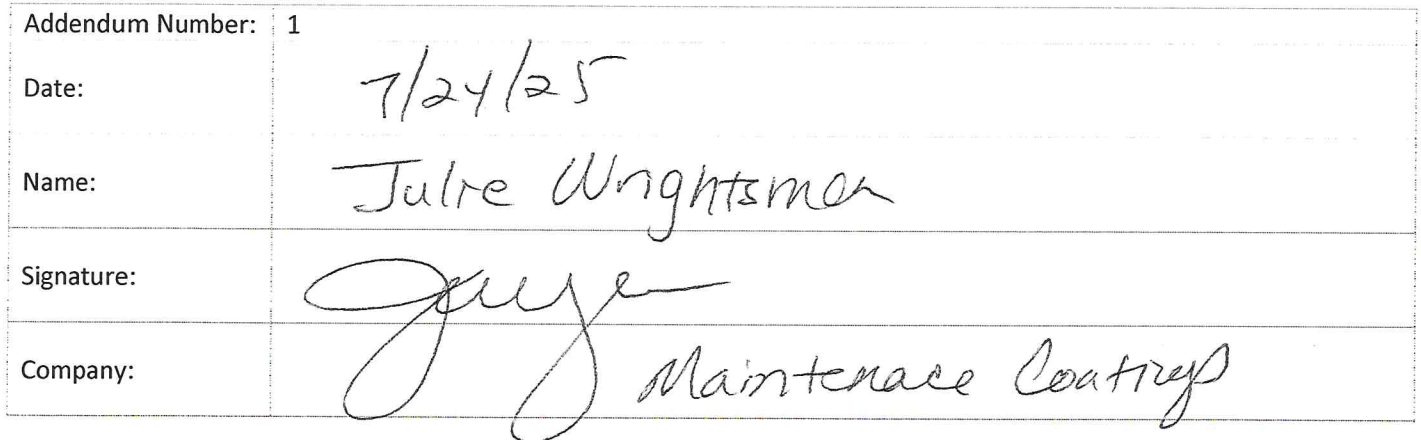 Addendum Number: 1
Date: 7/24/25
Name: Julie Wrightsman
Signature:
Company: Maintenace Coatings